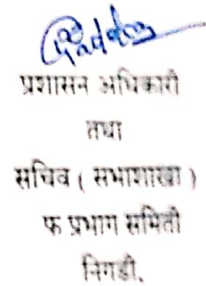 प्रशासन अधिकारी
तथा
सचिव ( सभाशाखा )
फ प्रभाग समिती
निगडी.